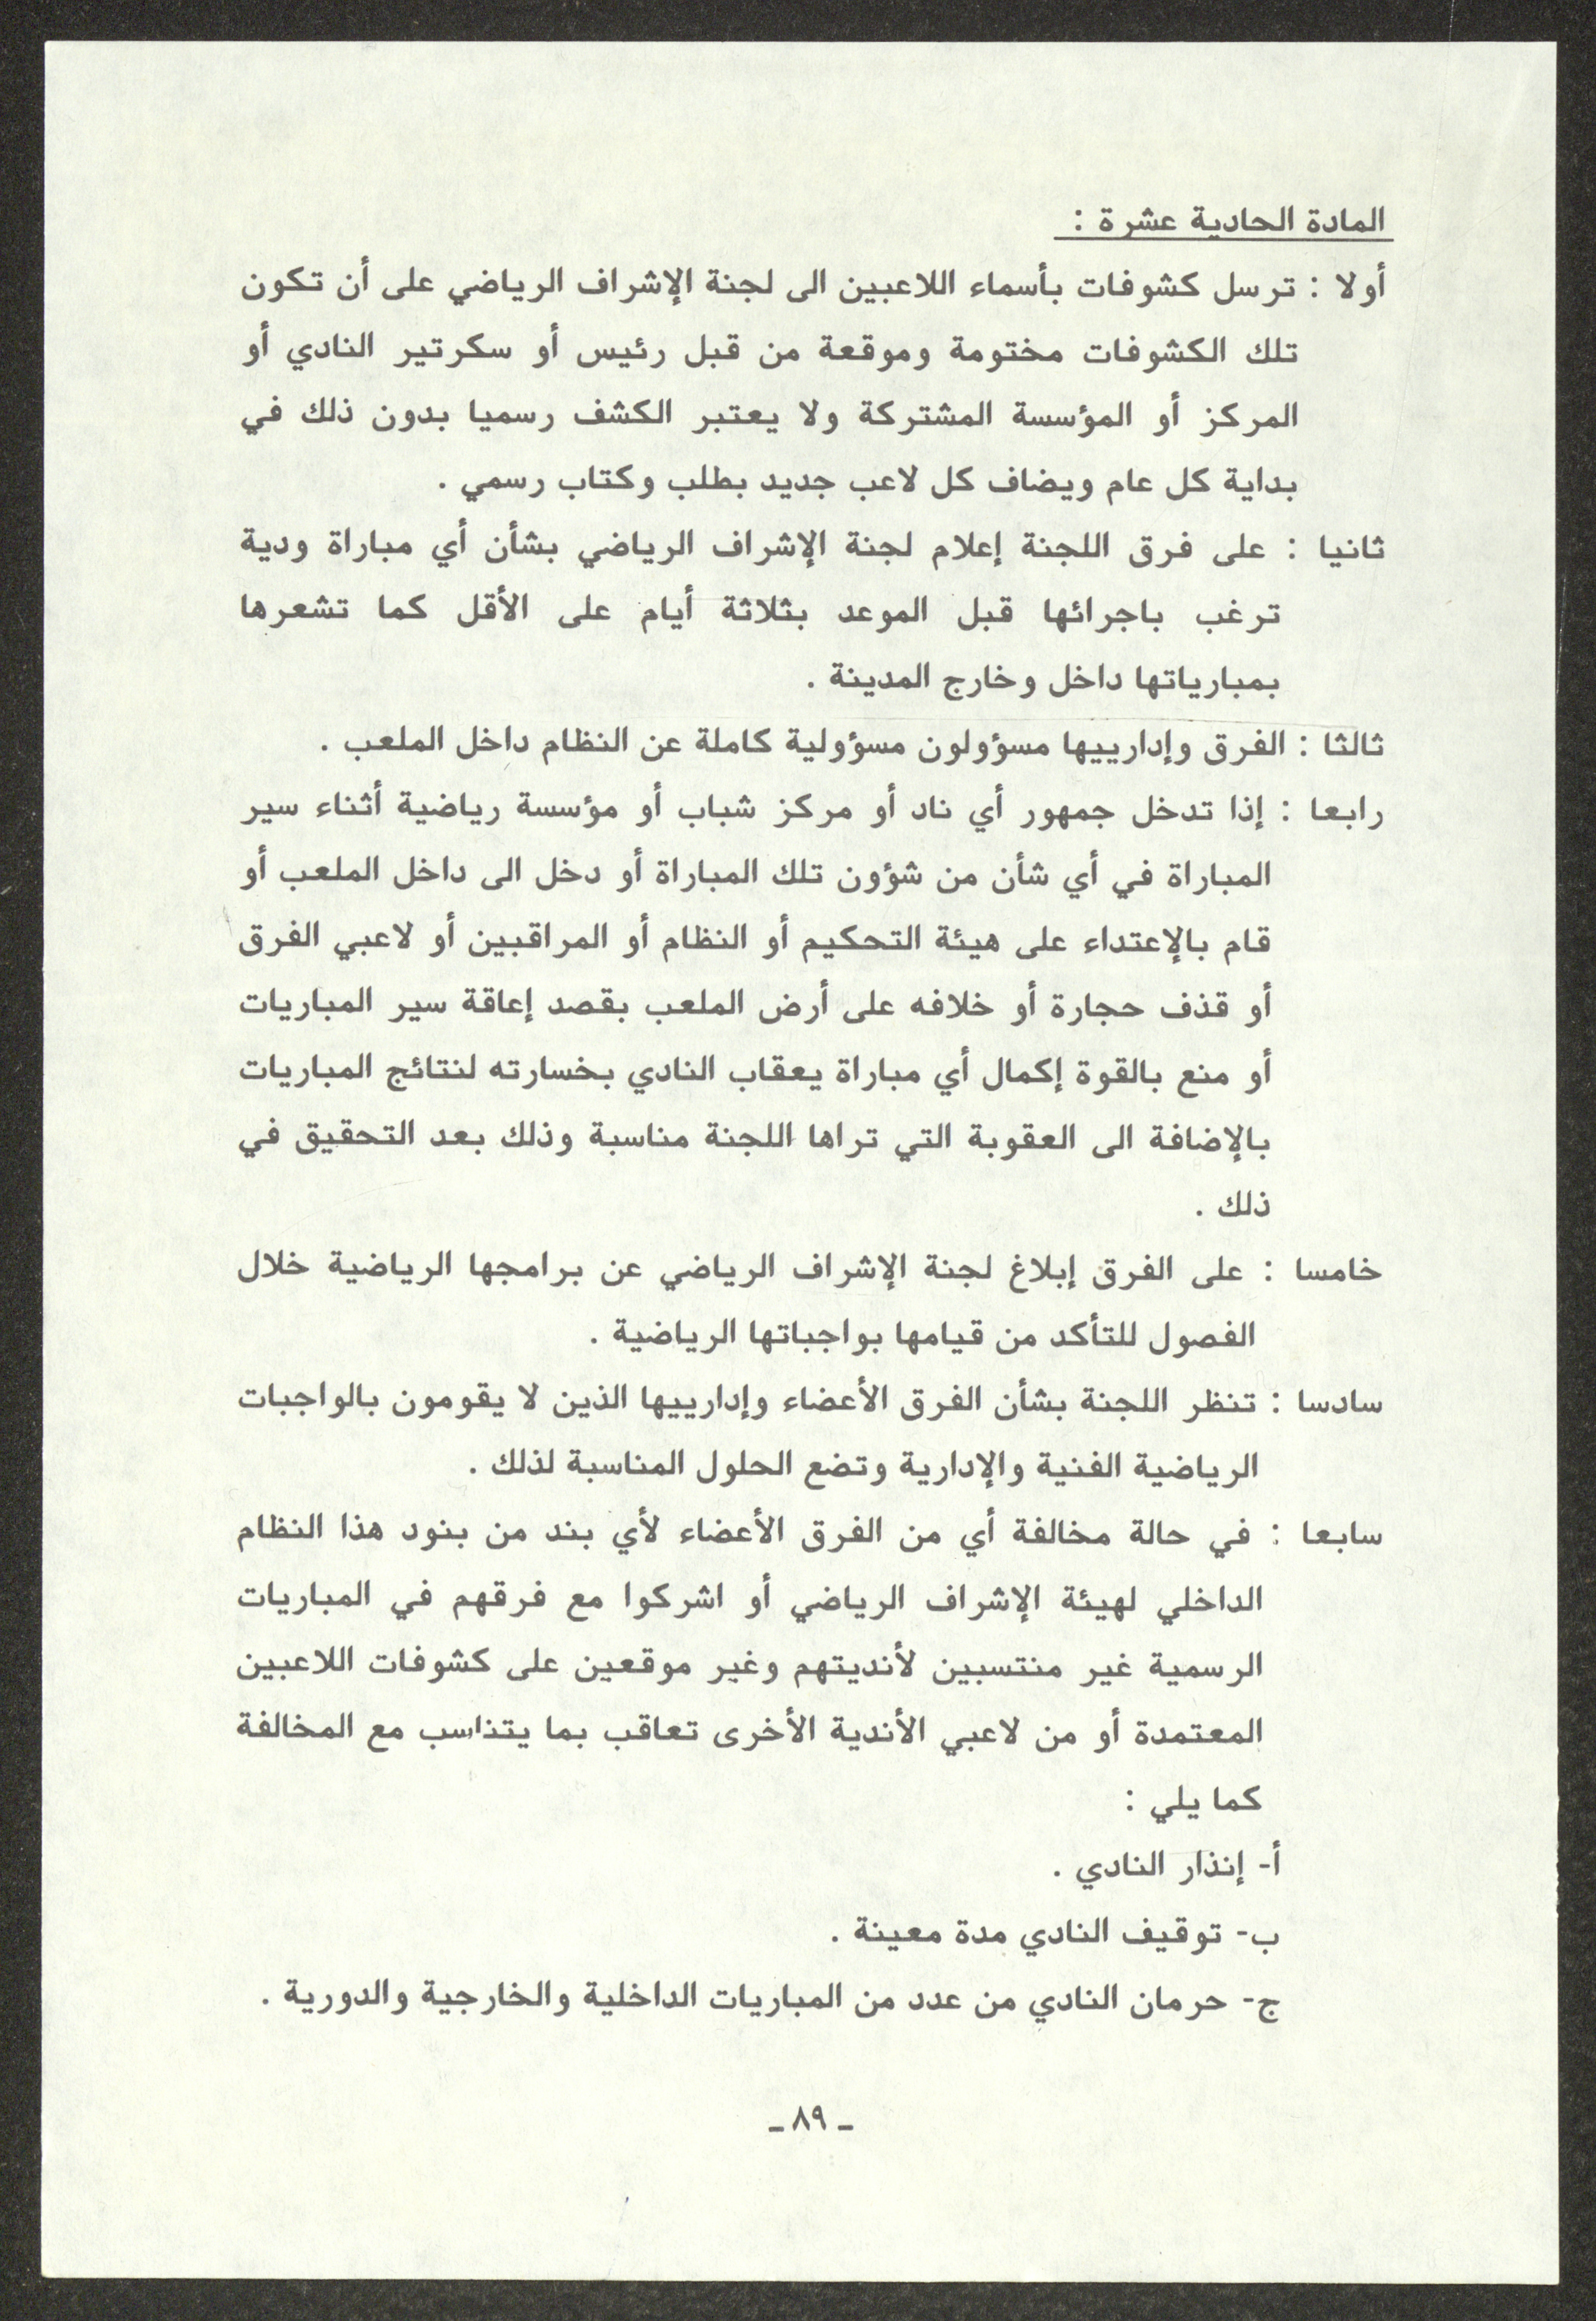 المادة الحادية عشرة :
أولا : ترسل كشوفات بأسماء اللاعبين الى لجنة الإشراف الرياضي على أن تكون
تلك الكشوفات مختومة وموقعة من قبل رئيس أو سكرتير النادي أو
المركز أو المؤسسة المشتركة ولا يعتبر الكشف رسميا بدون ذلك في
بداية كل عام ويضاف كل لاعب جديد بطلب وكتاب رسمي .
ثانيا : على فرق اللجنة إعلام لجنة الإشراف الرياضي بشأن أي مباراة ودية
ترغب باجرائها قبل الموعد بثلاثة أيام على الأقل كما تشعرها
بمبارياتها داخل وخارج المدينة .
ثالثا : الفرق وإدارييها مسؤولون مسؤولية كاملة عن النظام داخل الملعب .
رابعا : إذا تدخل جمهور أي ناد أو مركز شباب أو مؤسسة رياضية أثناء سير
المباراة في أي شأن من شؤون تلك المباراة أو دخل الى داخل الملعب أو
قام بالإعتداء على هيئة التحكيم أو النظام أو المراقبين أو لاعبي الفرق
أو قذف حجارة أو خلافه على أرض الملعب بقصد إعاقة سير المباريات
أو منع بالقوة إكمال أي مباراة يعقاب النادي بخسارته لنتائج المباريات
بالإضافة الى العقوبة التي تراها اللجنة مناسبة وذلك بعد التحقيق في
ذلك .
خامسا : على الفرق إبلاغ لجنة الإشراف الرياضي عن برامجها الرياضية خلال
الفصول للتأكد من قيامها بواجباتها الرياضية .
سادسا : تنظر اللجنة بشأن الفرق الأعضاء وإدارييها الذين لا يقومون بالواجبات
الرياضية الفنية والإدارية وتضع الحلول المناسبة لذلك .
سابعا : في حالة مخالفة أي من الفرق الأعضاء لأي بند من بنود هذا النظام
الداخلي لهيئة الإشراف الرياضي أو اشركوا مع فرقهم في المباريات
الرسمية غير منتسبين لأنديتهم وغير موقعين على كشوفات اللاعبين
المعتمدة أو من لاعبي الأندية الأخرى تعاقب بما يتناسب مع المخالفة
كما يلي :
أ- إنذار النادي .
ب- توقيف النادي مدة معينة .
ج- حرمان النادي من عدد من المباريات الداخلية والخارجية والدورية .
ـ ٨٩ ـ